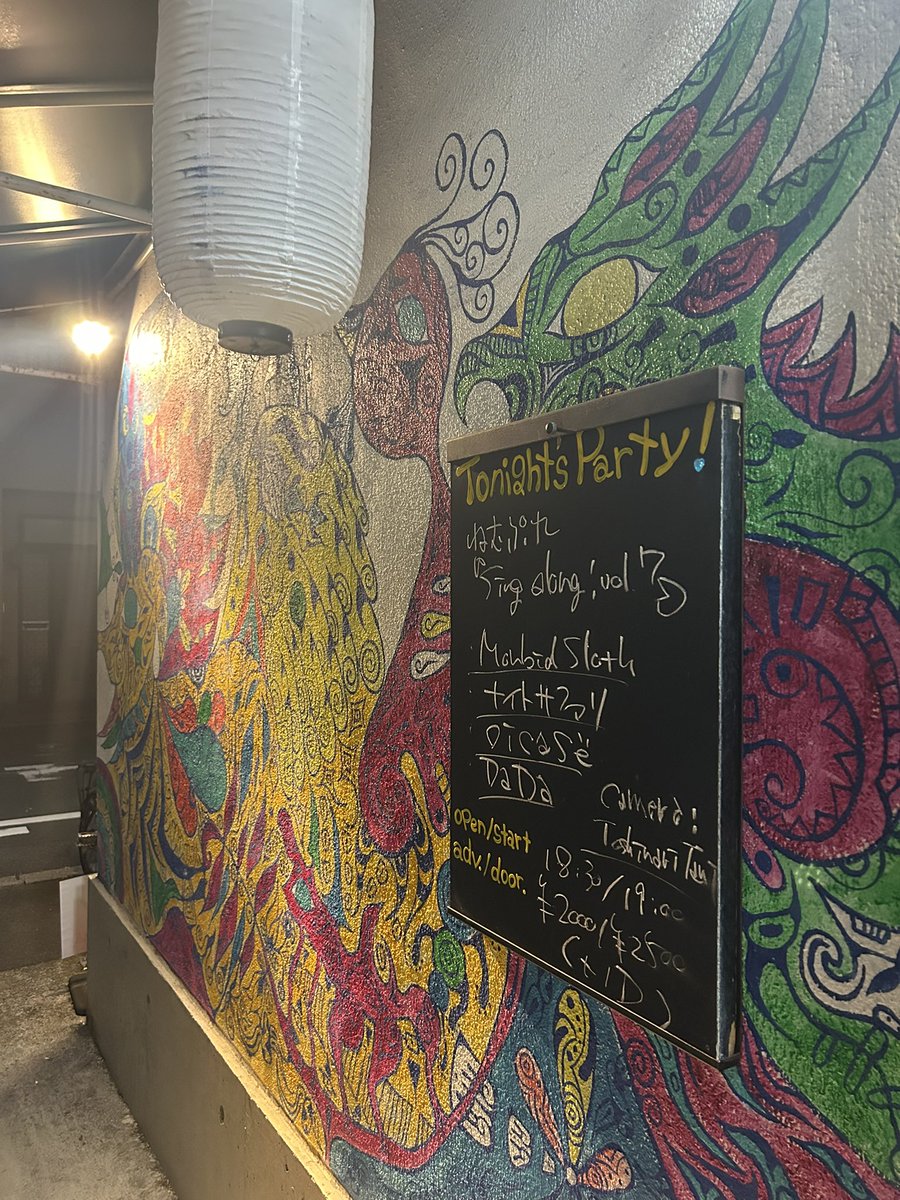 Tonight's Party!
ねむぷれ
"Sing along! vol 7"
Morbid Sloth
ナイトサファリ
Oicase
DaDa
Camera:
Toshinori
open/start
18:30/19:00
adv./door.
¥2000/¥2500
(+1D)